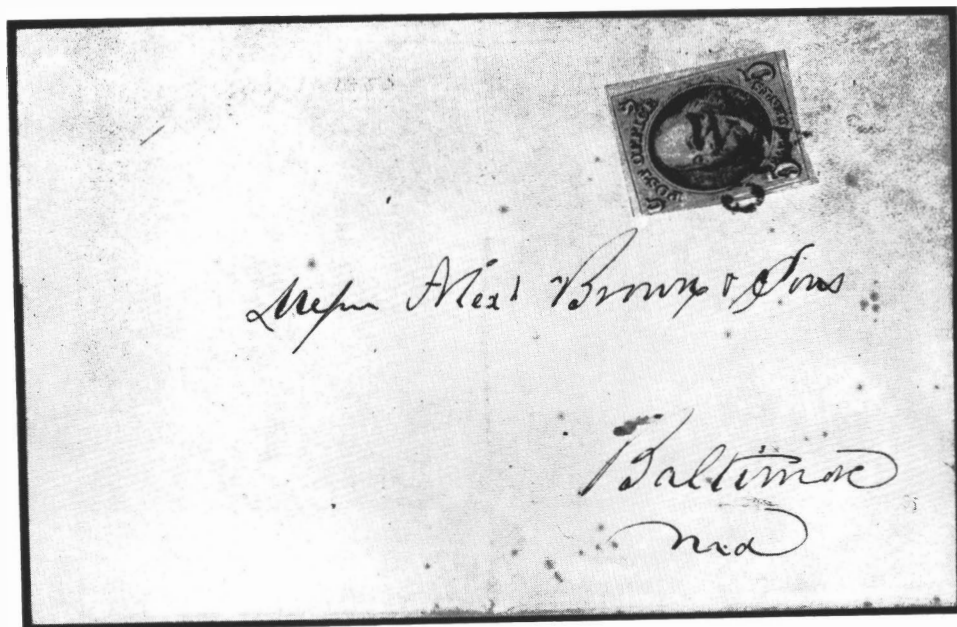 POST OFFICE
W
Messrs Alexd Brown & Sons
Baltimore
Md